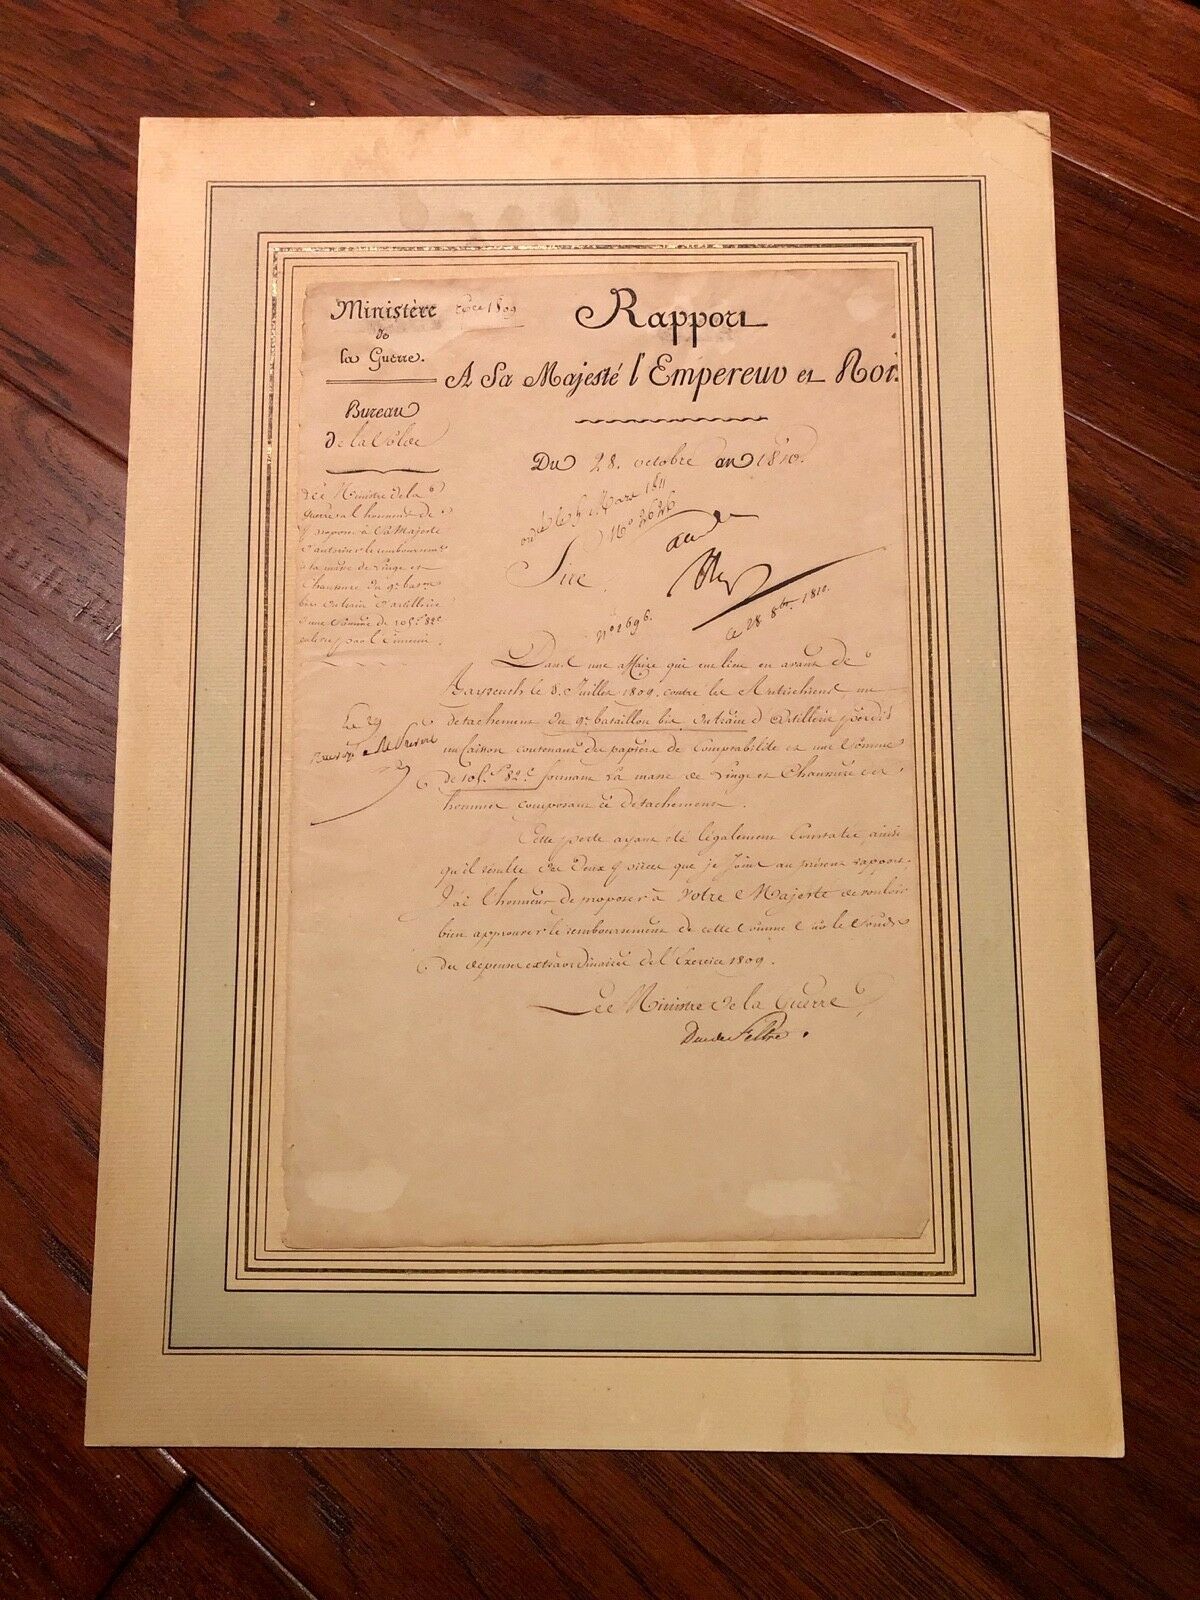 Ministère
de
la Guerre.
Bureau
de la Solde
1809
Rapport
A Sa Majesté l'Empereur et Roi.
Du 28. octobre an 1810.
Le Ministre de la
Guerre a l'honneur de
proposer à Sa Majesté
d'autoriser le remboursement
la masse de Linge et
Chaussure du 9e. baton.
bis du train d'artillerie
d'une somme de
enlevée par l'Ennemi.
le 5 Mars 1811
No 2626
Sire,
No 2696.
ce 28 8bre. 1810.
Dans une affaire qui eut lieu en avant de
le 8. Juillet 1809. contre les Autrichiens un
détachement du 9e. bataillon bis du train d'Artillerie perdit
un Caisson contenant des papiers de Comptabilité et une Somme
de formant la masse de Linge et Chaussure des
hommes composant ce détachement.
Cette perte ayant été légalement Constatée, ainsi
qu'il résulte des deux pièces que je joins au présent rapport,
J'ai l'honneur de proposer à Votre Majesté de vouloir
bien approuver le remboursement de cette Somme sur le fonds
des dépenses extraordinaires de l'Exercice 1809.
Le Ministre de la Guerre,
Duc de Feltre.